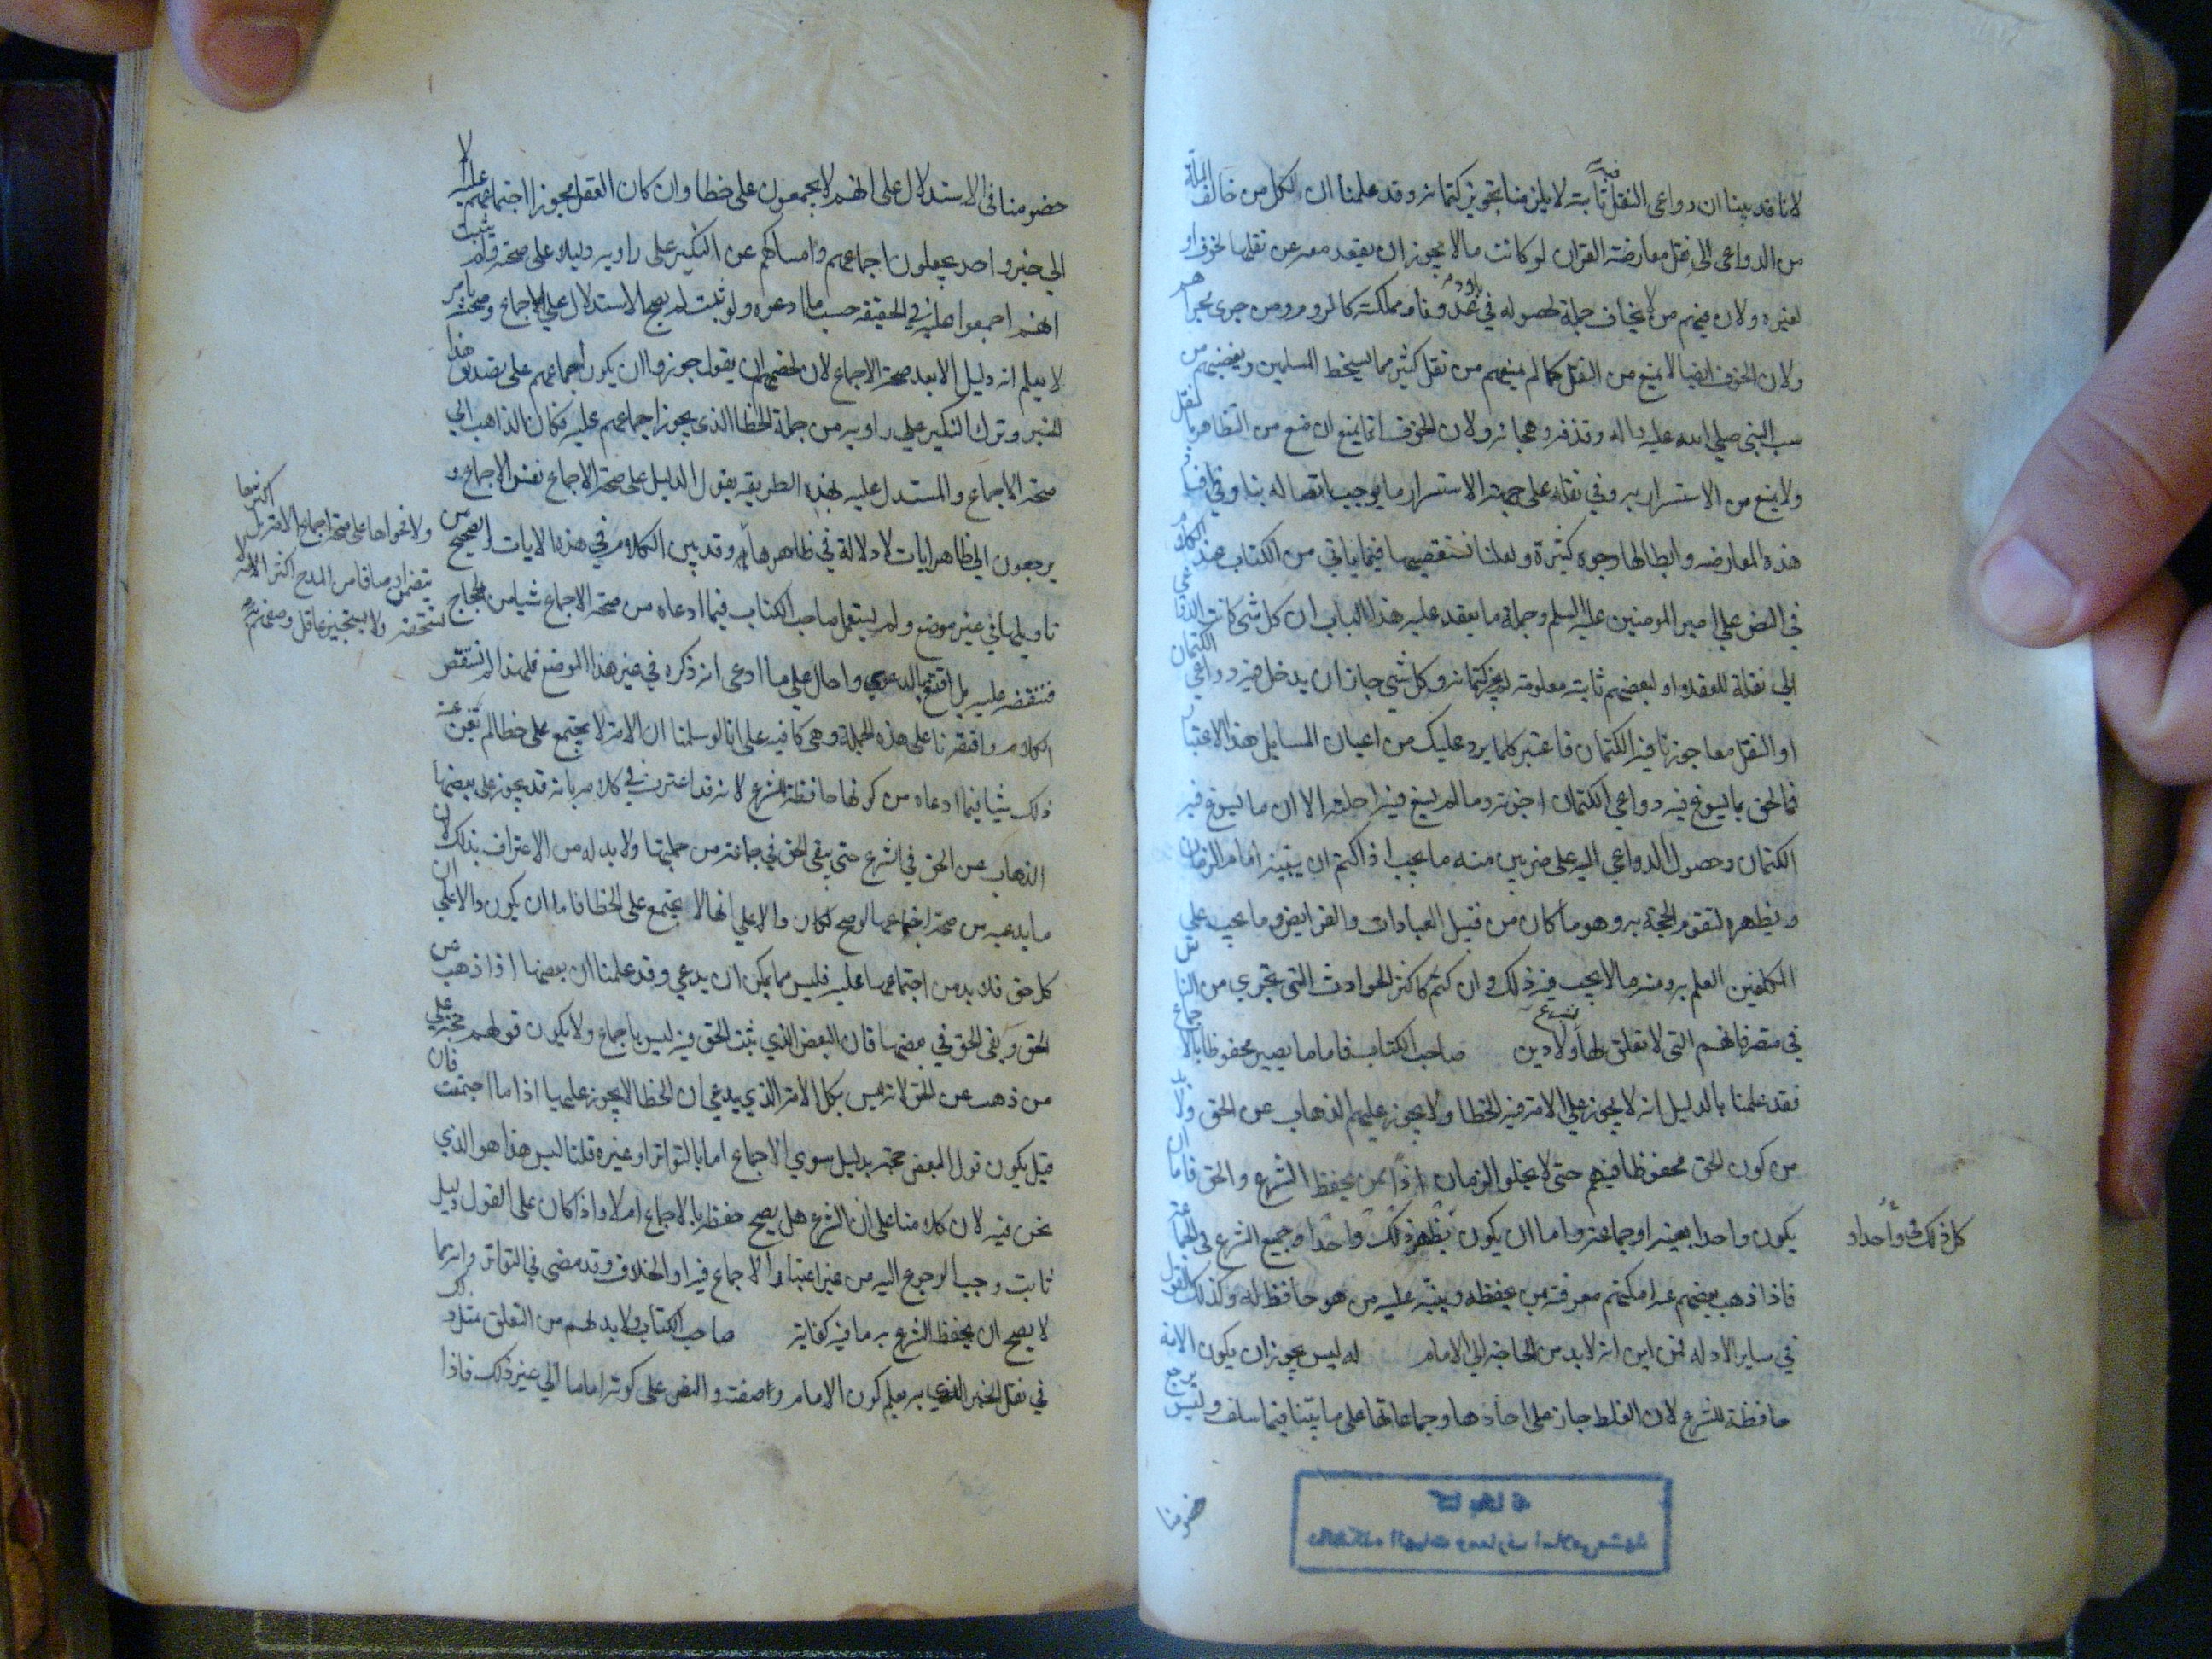 لانا قد بينا ان دواعي النقل فيه ثابتة لا يلزمنا تجويز كتمانه وقد علمنا ان لكل من خالف الملة
من الدواعي الى نقل معارضة القران لو كانت ما لا يجوز ان يقعد معه عن نقلها لخوف او
لغيره ولان فيهم من لا يخاف جملة لحصوله في بلاده و مملكته كالروم ومن جرى مجراهم
ولان الخوف ايضا لا يمنع من النقل كما لم يمنعهم من نقل كثير مما يسخط المسلمين ويغضبهم من
سب النبي صلى الله عليه واله وقذفه وهجائه ولان الخوف انما يمنع ان منع من التظاهر بالنقل
ولا يمنع من الاستسرار به وفي نقله على جهة الاستسرار ما يوجب اتصاله بنا وفي افساد
هذه المعارضه وابطالها وجوه كثيرة ولعلنا نستقصيها فيما ياتي من الكتاب عند الكلام
في النص على امير المومنين عليه السلم وجملة ما يعقد عليه هذا الباب ان كل شي كانت الدواعي
الى نقله للعقلاء او لبعضهم ثابته معلومة لم يجز كتمانه وكل شي جاز ان يدخل فيه دواعي الكتمان
او النقل معا جوزنا فيه الكتمان فاعتبر كلما يرد عليك من اعيان المسايل هذا الاعتبار
فما لحق بما يسوغ فيه دواعي الكتمان اجزته وما لم يسغ فيه احلته الا ان ما يسوغ فيه
الكتمان وحصول الدواعي اليه على ضربين منه ما يجب اذا كتم ان يبينه امام الزمان
ويظهره لتقوم الحجة به وهو ما كان من قبيل العبادات والفرايض وما يجب على
المكلفين العلم به ومنه ما لا يجب فيه ذلك وان كتم كاكثر الحوادث التي تجري من الناس
في متصرفاتهم التي لا تعلق لها بشرع ولا دين صاحب الكتاب فاما ما يصير محفوظا بالاجماع
فقد علمنا بالدليل انه لا يجوز على الامة فيه الخطا ولا يجوز عليهم الذهاب عن الحق ولا بد
من كون الحق محفوظا فيهم حتى لا يخلو الزمان اذا ممن يحفظ الشرع والحق فاما ان
يكون واحدا بعينه او جماعة واما ان يكون يظهر ذلك واحدا وجميع الشرع في الجماعة
كل ذلك في واحد او
فاذا ذهب بعضهم عنه امكنهم معرفته ممن يحفظه وينبه عليه من هو حافظ له وكذلك القول
في ساير الادله فمن اين انه لا بد من الحاجة الى الامام له ليس يجوز ان يكون الامة
حافظة للشرع لان الغلط جاز على احادها وجماعاتها على ما بينا فيما سلف وليس يرجع
خصومنا
حضومنا في الاستدلال على انهم لا يجمعون على خطا وان كان العقل مجوزا اجتماعهم عليه الا
الى خبر واحد يجعلون اجماعهم وامساكهم عن النكير على راويه دليلا على صحته ولم يثبت
انهم اجمعوا عليه في الحقيقة حسب ما ادعوه ولو ثبت لم يصح الاستدلال على الاجماع وصحته بامر
لا يعلم انه دليل الا بعد صحة الاجماع لان لخصمهم ان يقول جوزوا ان يكون اجماعهم على تصديق هذا
الخبر وترك النكير على راويه من جملة الخطا الذي يجوز اجماعهم عليه فكان الذاهب الى
صحة الاجماع والمستدل عليه بهذه الطريقه يقول الدليل على صحة الاجماع نفس الاجماع و
يرجعون الى ظاهر ايات لا دلالة في ظاهرها وقد بين الكلام في هذه الايات والصحيح من
ولا فحواها على صحة اجماع الامة بل اكثرها
يتضمن اوصافا من المدح اكثر الامة لا
تستحقه ولا يستجيز عاقل وصفهم به
تاويلها في غير موضع ولم يستعمل صاحب الكتاب فيما ادعاه من صحة الاجماع شيا من الحجاج
فننقضه عليه بل اقتنع بالدعوى واحال على ما ادعى انه ذكره في غير هذا الموضع فلهذا لم نستقص
الكلام واقتصرنا على هذه الجملة وهي كافيه على انا لو سلمنا ان الامة لا يجتمع على خطا لم يغن عنه
ذلك شيا فيما ادعاه من كونها حافظة للشرع لانه قد اعترف في كلامه بانه قد يجوز على بعضها
الذهاب عن الحق في الشرع حتى يبقى الحق في جماعة من جملتها ولا بد له من الاعتراف بذلك لان
ما يدعيه من صحة اجماعها لو صح لكان دالا على انها لا يجتمع على الخطا فاما ان يكون دالا على ان
كل حق فلا بد من اجتماعها عليه فليس مما يمكن ان يدعي وقد علمنا ان بعضها اذا ذهب عن
الحق وبقى الحق في بعضها فان البعض الذي ثبت الحق فيه ليس باجماع ولا يكون قولهم حجة على
من ذهب عن الحق لانه ليس بكل الامة الذي يدعي ان الخطا لا يجوز عليها اذا ما اجتمعت فان
قيل يكون قول البعض حجة بدليل سوى الاجماع اما بالتواتر او غيره قلنا ليس هذا هو الذي
نحن فيه لان كلامنا على ان الشرع هل يصح حفظه بالاجماع ام لا واذا كان على القول دليل
ثابت وجب الرجوع اليه من غير اعتبار الاجماع فيه او الخلاف وقد مضى في التواتر وانه مما
لا يصح ان يحفظ الشرع به ما فيه كفاية صاحب الكتاب ولا بد لهم من التعلق بمثل ذلك
في نقل الخبر الذي به يعلم كون الامام وصفته والنص على كونه اماما الى غير ذلك فاذا